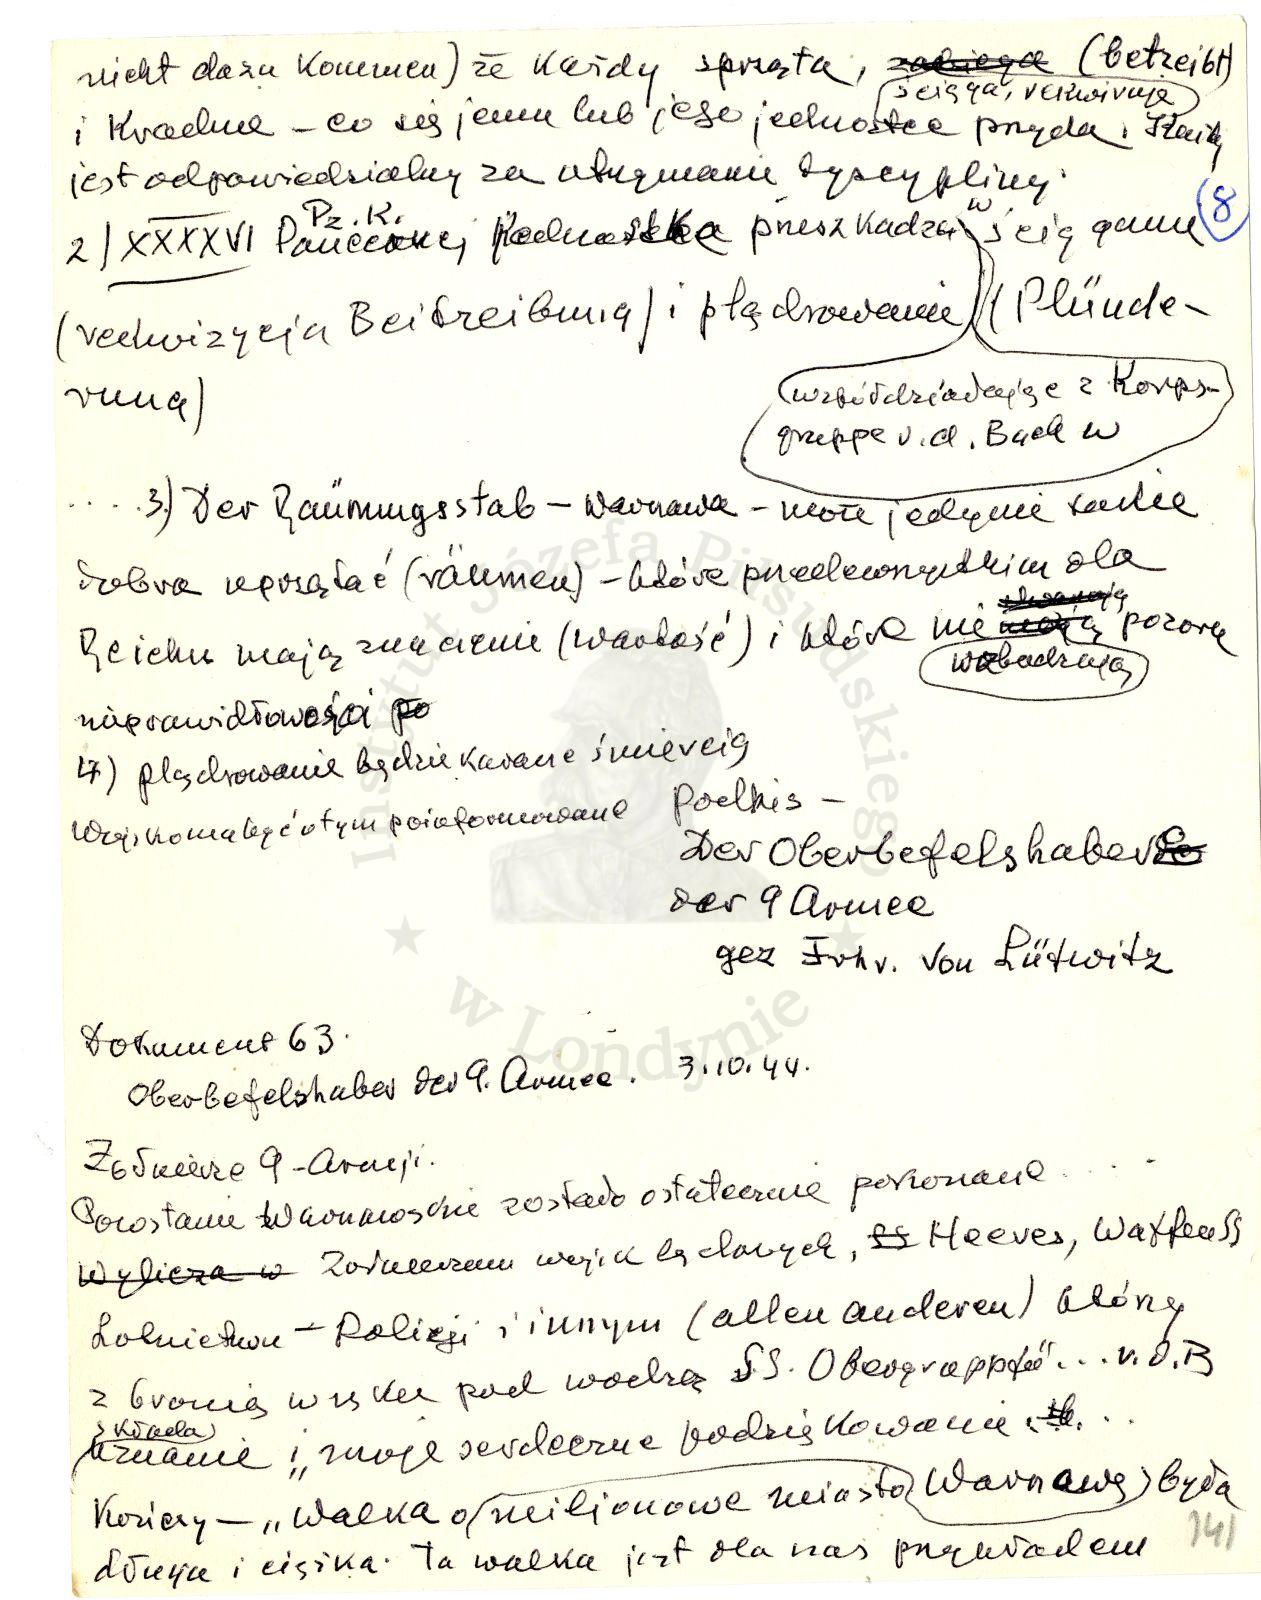 nicht dazu kommen) że każdy sprząta, zabiega (betreibt)
ściąga, rekwiruje
i kradnie – co się jemu lub jego jednostce przyda. Każdy
jest odpowiedzialny za utrzymanie dyscypliny.
8
Pz. K.
2) XXXXVI Pancernej Jednostka przeszkadza w ściąganiu
(rekwizycja Beitreibung) i plądrowanie (Plünde-
rung)
współdziałając z Korps-
gruppe v.d. Bach w
.... 3.) Der Räumungsstab – Warszawa – może jedynie takie
dobra uprzątać (räumen) – które przedewszystkim dla
stwarzają
Reichu mają znaczenie (wartość) i które nie mają pozorą
wzbudzają
nieprawidłowości po
4) plądrowanie będzie karane śmiercią
Wojsko ma być o tym poinformowane
Podpis –
Der Oberbefelshaber
der 9 Armee
gez Frhr. von Lütwitz
Dokument 63.
Oberbefelshaber der 9. Armee. 3.10.44.
Żołnierze 9-Armji.
Powstanie Warszawskie zostało ostatecznie pokonane ....
Wylicza w Żołnierzom wojsk lądowych, SS Heeres, Waffen SS
Lotnictwu – Policji i innym (allen anderen) którzy
z bronią w ręku pod wodzą SS. Obergruppfü... v.d.B
składa
uznanie i „moje serdeczne podziękowanie. ...
Kończy – „Walka o milionowe miasto Warszawę była
długa i ciężka. Ta walka jest dla nas przykładem
141
Instytut Józefa Piłsudskiego
w Londynie